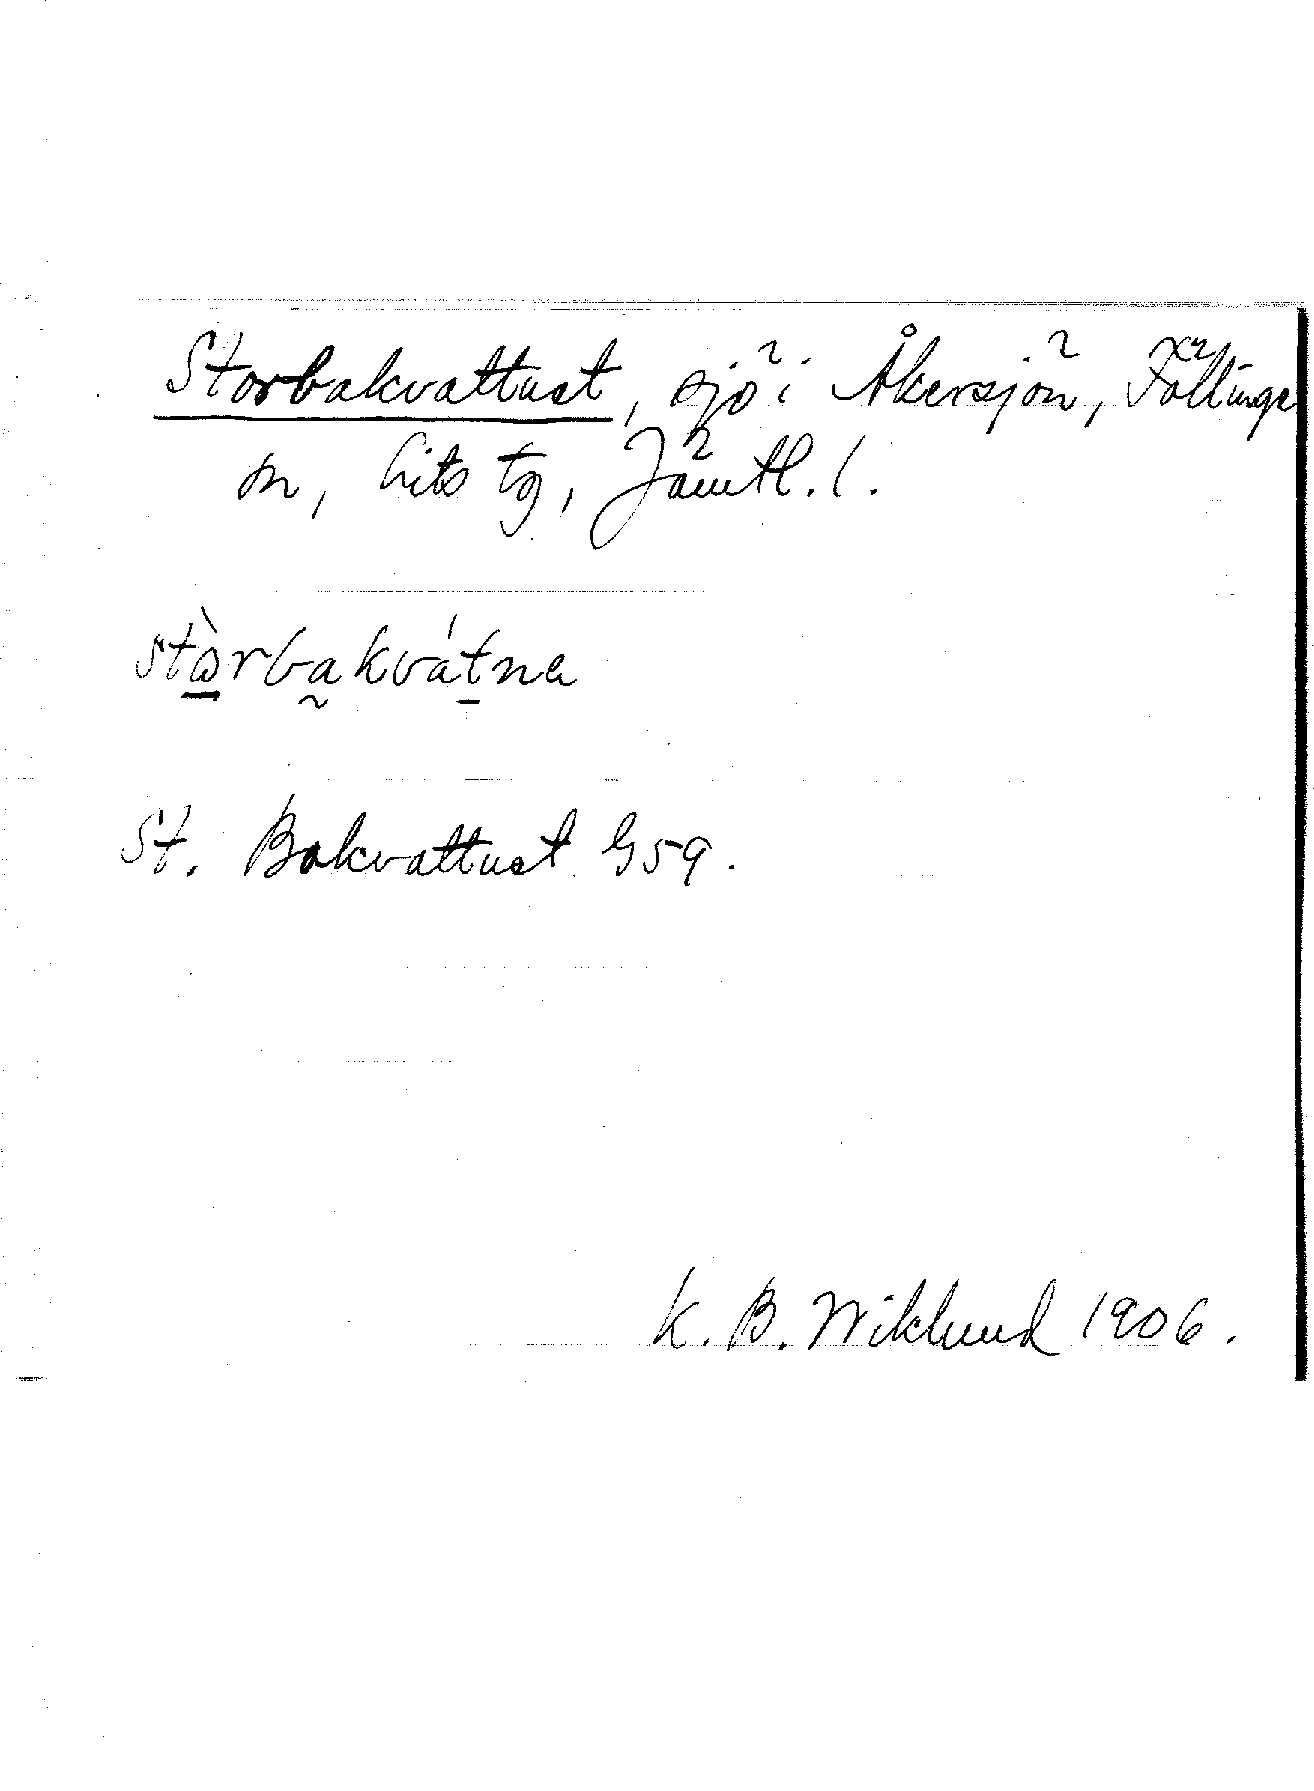 Storbakvattnet, sjö i Åkersjön, Föllinge
sn, Lits tg, Jämtl. l.
stòrbakvátnɐ
St. Bakvattnet G59.
K. B. Wiklund 1906.